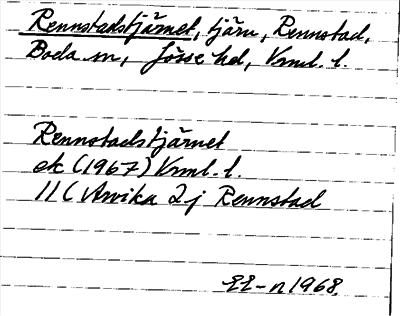 Rennstadstjärnet, tjärn, Rennstad,
Boda sn, Jösse hd, Vrml. l.
Rennstadstjärnet
ek (1967) Vrml. l.
11 C Arvika 2 j Rennstad
1968